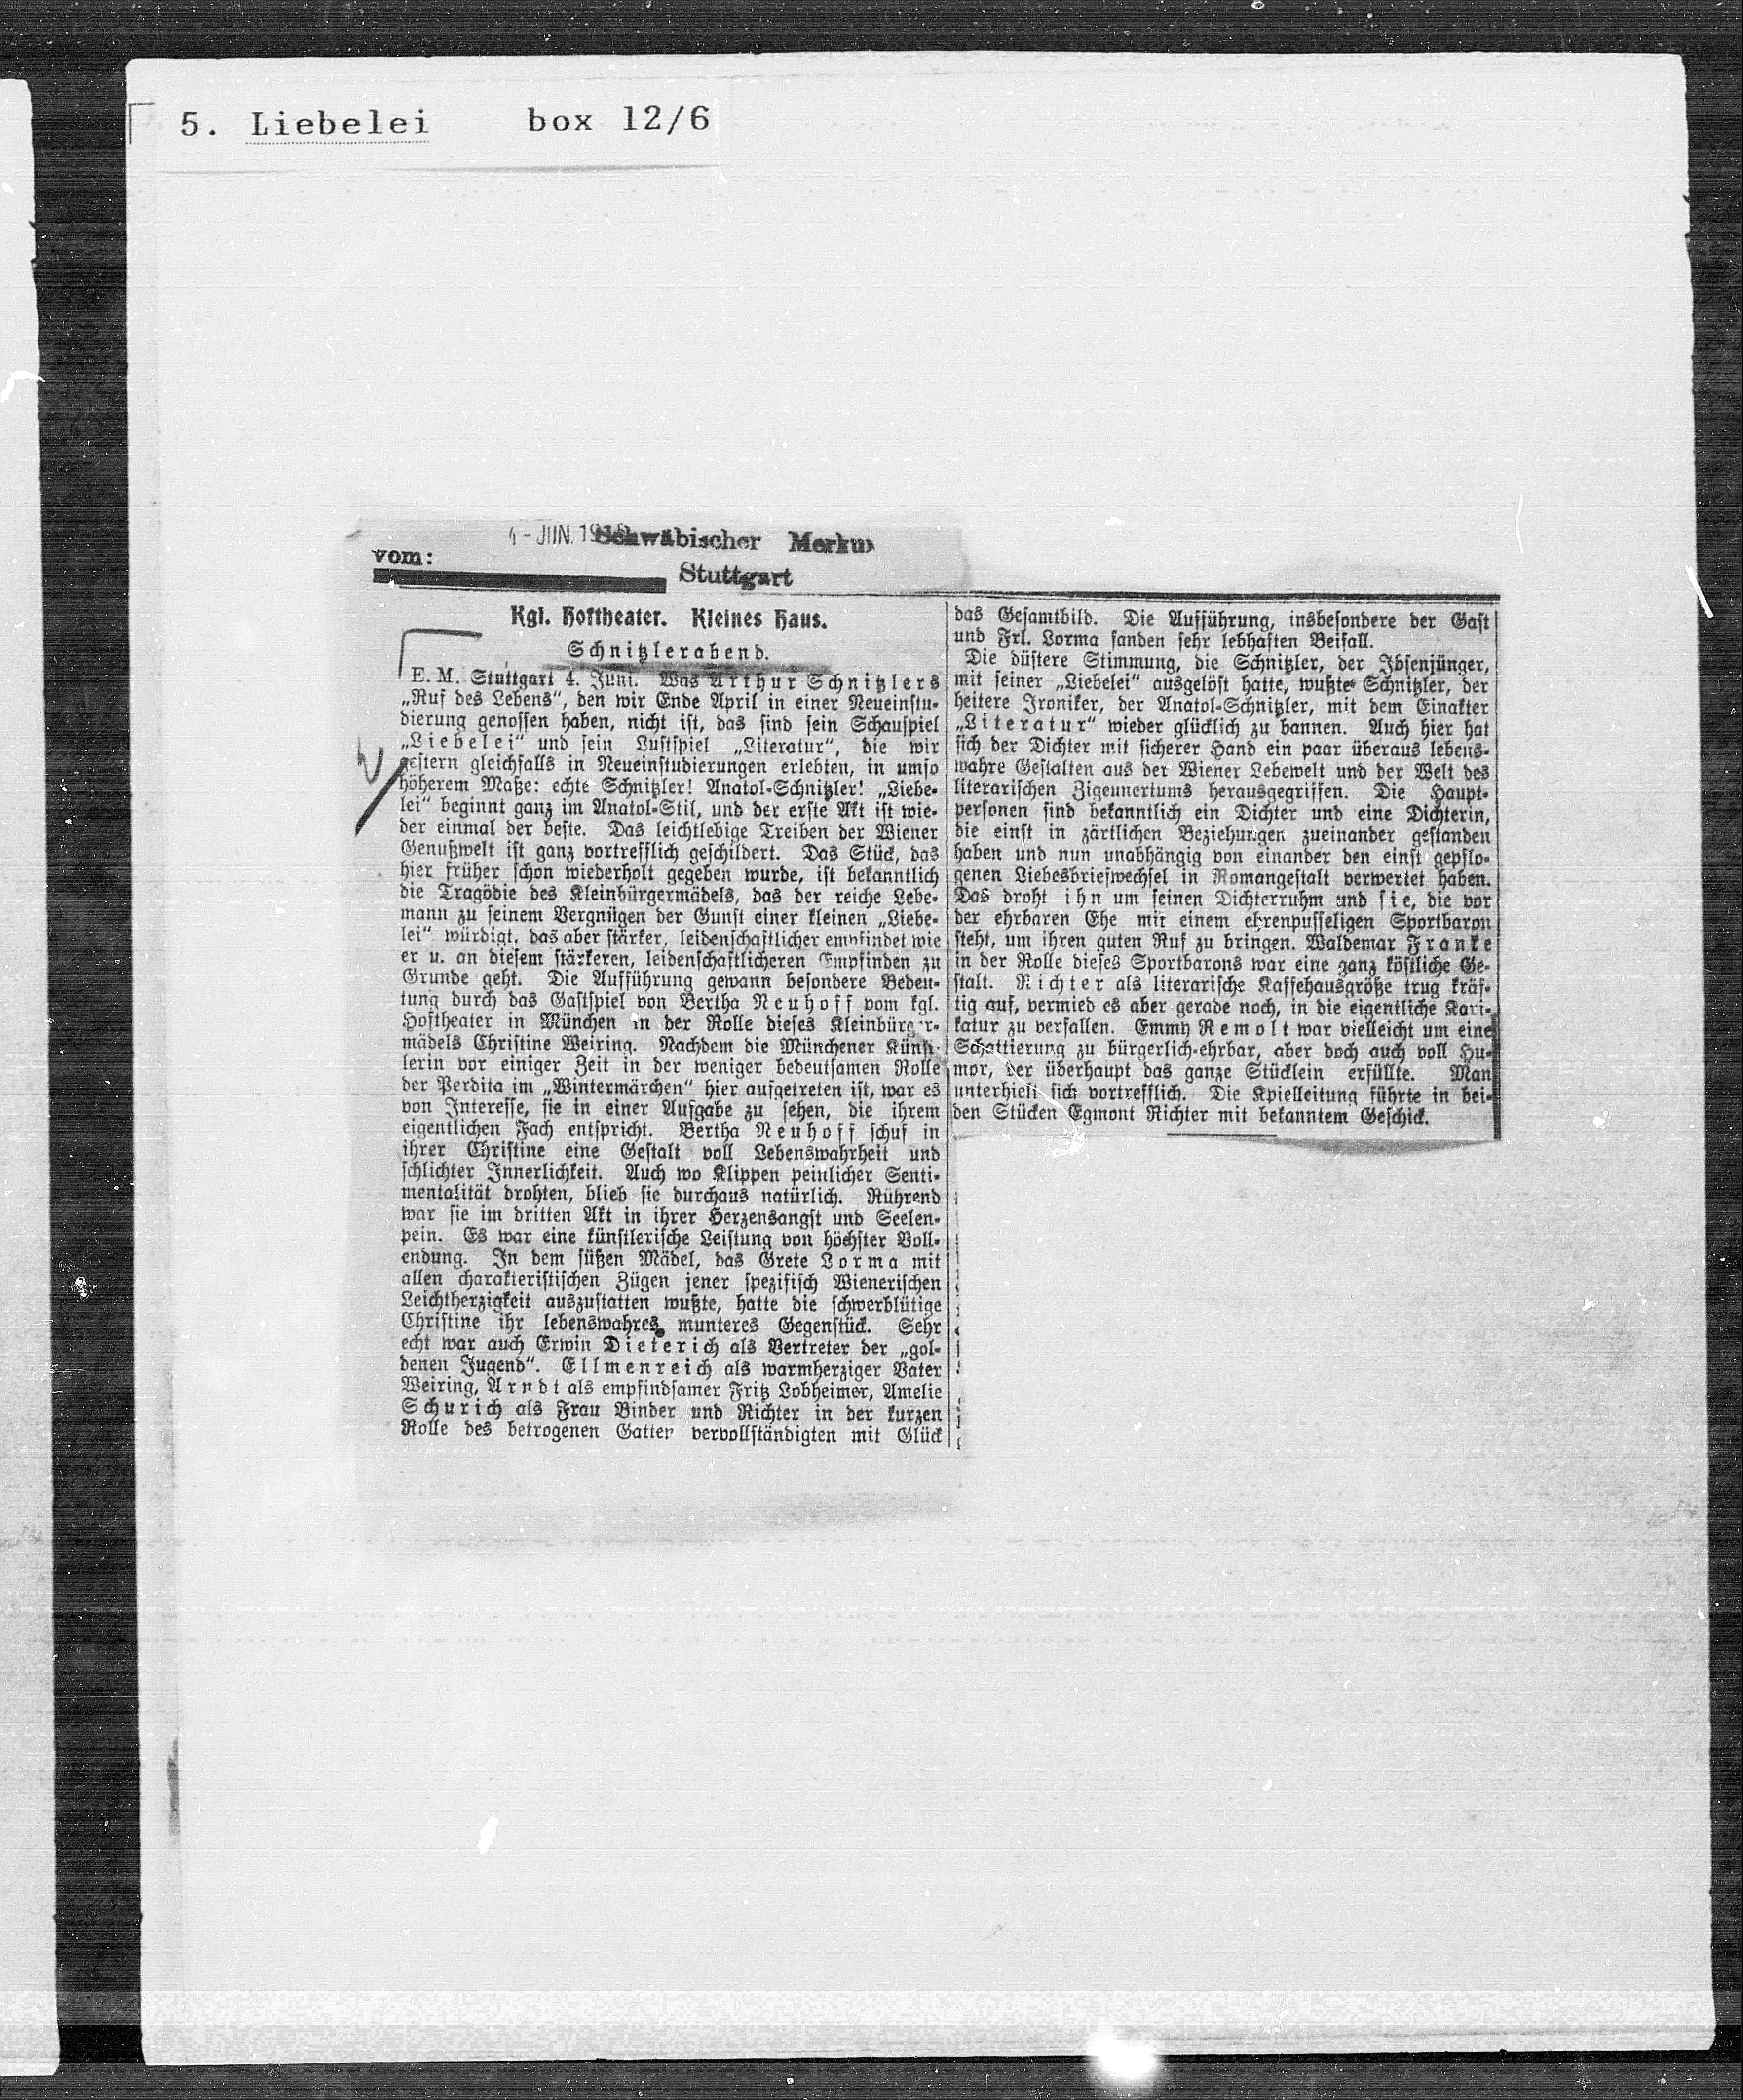 5. Liebelei box 12/6
4 - JUN. 19
Schwäbischer Merkur
vom:
Stuttgart
Kgl. Hoftheater. Kleines Haus.
Schnitzlerabend.
E. M. Stuttgart 4. Juni. Was Arthur Schnitzlers
„Ruf des Lebens“, den wir Ende April in einer Neueinstu-
dierung genossen haben, nicht ist, das sind sein Schauspiel
„Liebelei“ und sein Lustspiel „Literatur“, die wir
gestern gleichfalls in Neueinstudierungen erlebten, in umso
höherem Maße: echte Schnitzler! Anatol-Schnitzler! „Liebe-
lei“ beginnt ganz im Anatol-Stil, und der erste Akt ist wie-
der einmal der beste. Das leichtlebige Treiben der Wiener
Genußwelt ist ganz vortrefflich geschildert. Das Stück, das
hier früher schon wiederholt gegeben wurde, ist bekanntlich
die Tragödie des Kleinbürgermädels, das der reiche Lebe-
mann zu seinem Vergnügen der Gunst einer kleinen „Liebe-
lei“ würdigt, das aber stärker, leidenschaftlicher empfindet wie
er u. an diesem stärkeren, leidenschaftlicheren Empfinden zu
Grunde geht. Die Aufführung gewann besondere Bedeu-
tung durch das Gastspiel von Bertha Neuhoff vom kgl.
Hoftheater in München in der Rolle dieses Kleinbürger-
mädels Christine Weiring. Nachdem die Münchener Künst-
lerin vor einiger Zeit in der weniger bedeutsamen Rolle
der Perdita im „Wintermärchen“ hier aufgetreten ist, war es
von Interesse, sie in einer Aufgabe zu sehen, die ihrem
eigentlichen Fach entspricht. Bertha Neuhoff schuf in
ihrer Christine eine Gestalt voll Lebenswahrheit und
schlichter Innerlichkeit. Auch wo Klippen peinlicher Senti-
mentalität drohten, blieb sie durchaus natürlich. Rührend
war sie im dritten Akt in ihrer Herzensangst und Seelen-
pein. Es war eine künstlerische Leistung von höchster Voll-
endung. In dem süßen Mädel, das Grete Lorma mit
allen charakteristischen Zügen jener spezifisch Wienerischen
Leichtherzigkeit auszustatten wußte, hatte die schwerblütige
Christine ihr lebenswahres munteres Gegenstück. Sehr
echt war auch Erwin Dieterich als Vertreter der „gol-
denen Jugend“. Ellmenreich als warmherziger Vater
Weiring, Arndt als empfindsamer Fritz Lobheimer, Amelie
Schurich als Frau Binder und Richter in der kurzen
Rolle des betrogenen Gatten vervollständigten mit Glück
das Gesamtbild. Die Aufführung, insbesondere der Gast
und Frl. Lorma fanden sehr lebhaften Beifall.
Die düstere Stimmung, die Schnitzler, der Ibsenjünger,
mit seiner „Liebelei“ ausgelöst hatte, wußte Schnitzler, der
heitere Ironiker, der Anatol-Schnitzler, mit dem Einakter
„Literatur“ wieder glücklich zu bannen. Auch hier hat
sich der Dichter mit sicherer Hand ein paar überaus lebens-
wahre Gestalten aus der Wiener Lebewelt und der Welt des
literarischen Zigeunertums herausgegriffen. Die Haupt-
personen sind bekanntlich ein Dichter und eine Dichterin,
die einst in zärtlichen Beziehungen zueinander gestanden
haben und nun unabhängig von einander den einst gepflo-
genen Liebesbriefwechsel in Romangestalt verwertet haben.
Das droht ihn um seinen Dichterruhm und sie, die vor
der ehrbaren Ehe mit einem ehrenpusseligen Sportbaron
steht, um ihren guten Ruf zu bringen. Waldemar Franke
in der Rolle dieses Sportbarons war eine ganz köstliche Ge-
stalt. Richter als literarische Kaffehausgröße trug kräf-
tig auf, vermied es aber gerade noch, in die eigentliche Kari-
katur zu verfallen. Emmy Remolt war vielleicht um eine
Schattierung zu bürgerlich-ehrbar, aber doch auch voll Hu-
mor, der überhaupt das ganze Stücklein erfüllte. Man
unterhielt sich vortrefflich. Die Kpielleitung führte in bei-
den Stücken Egmont Richter mit bekanntem Geschick.